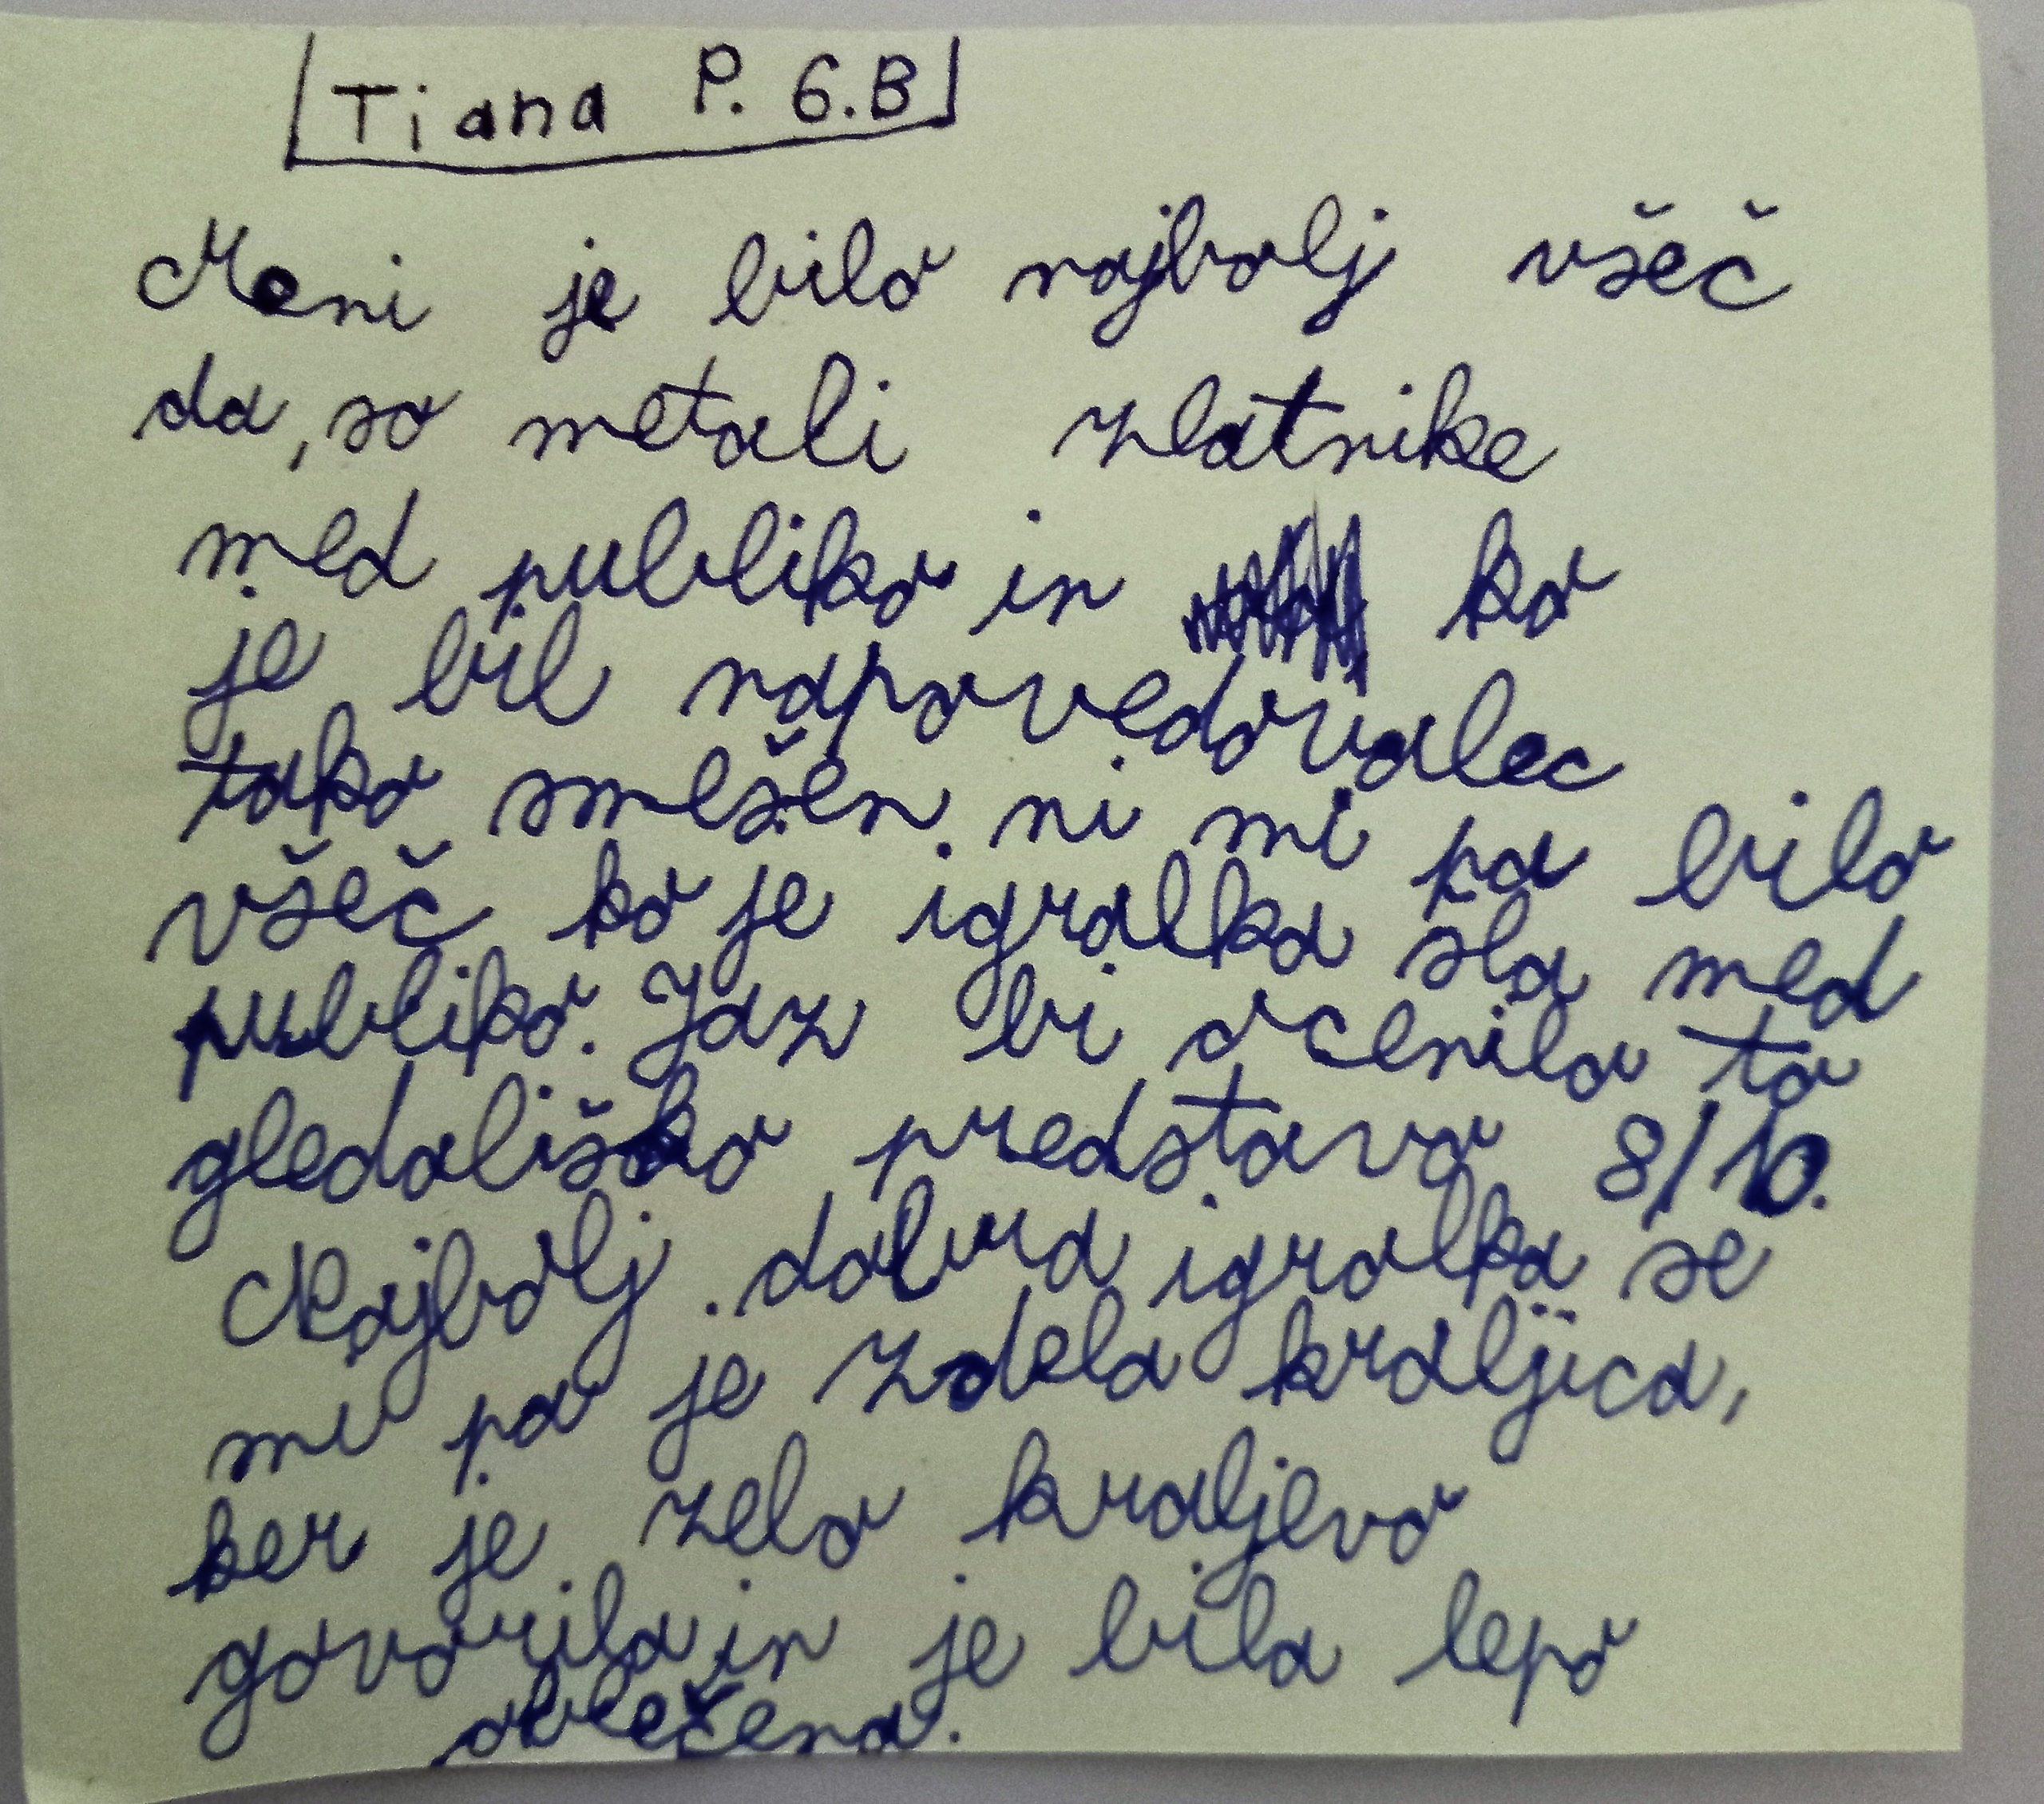 Tiana P. 6.B
Meni je bilo najbolj všeč
da, so metali zlatnike
med publiko in ko
je bil napovedovalec
tako smešen. ni mi pa bilo
všeč ko je igralka sla med
publiko. Jaz bi ocenila to
gledališko predstavo 8/10.
Najbolj dobra igralka se
mi pa je zdela kraljica,
ker je zelo kraljevo
govorila in je bila lepo
oblečena.